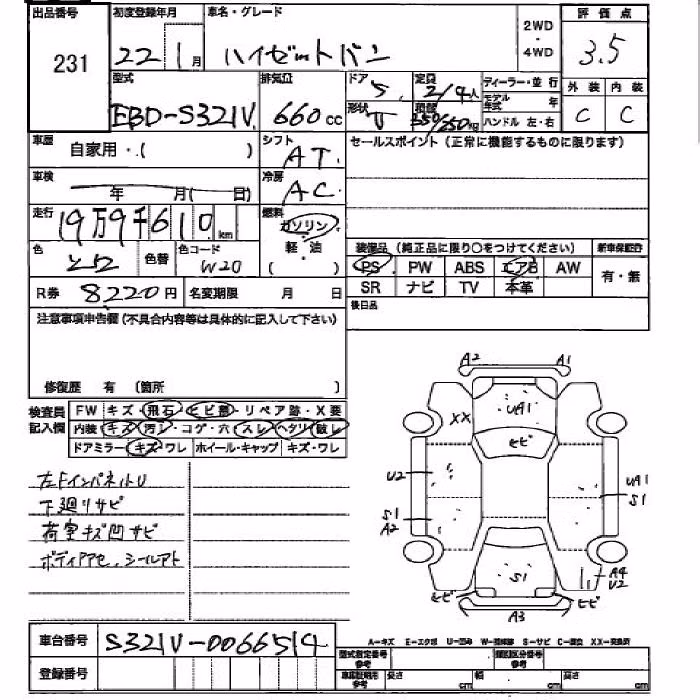 出品番号 初度登録年月 車名・グレード 2WD・4WD 評価点
231 22 1月 ハイゼットバン 3.5
型式 排気量 ドア 5 定員 2/4人 ディーラー・並行 外装 内装
モデル年式 年
EBD-S321V 660cc 形状 V 積載 350/250kg ハンドル 左・右 C C
車歴 自家用・( ) シフト AT セールスポイント(正常に機能するものに限ります)
車検 年 月( 日) 冷房 AC
走行 19万9千610km 燃料 ガソリン
軽・油
( )
色 シロ 色替 色コード W20 装備品(純正品に限り○をつけてください) 新車保証書
PS PW ABS エアB AW 有・無
R券 8220円 名変期限 月 日 SR ナビ TV 本革
注意事項申告欄(不具合内容等は具体的に記入して下さい) 後日品
修復歴 有 (箇所 )
検査員記入欄 FW キズ・飛石・ヒビ割・リペア跡・X要
内装・キズ・汚レ・コゲ・穴・スレ・ヘタリ・破レ
ドアミラー・キズ・ワレ ホイール・キャップ キズ・ワレ
左FインパネルU
下廻リサビ
荷室キズ凹サビ
ボディアセ、シールアト
A2 A1
XX UA1
ヒビ
U2 UA1
S1 S1
A2
S1 A4
U2
ヒビ ヒビ
A3
A-キズ E-エクボ U-凹み W-補修跡 S-サビ C-腐食 XX-交換済
車台番号 S321V-0066514
登録番号
型式指定番号参考 類別区分番号参考
車庫証明用参考 長さ cm 幅 cm 高さ cm